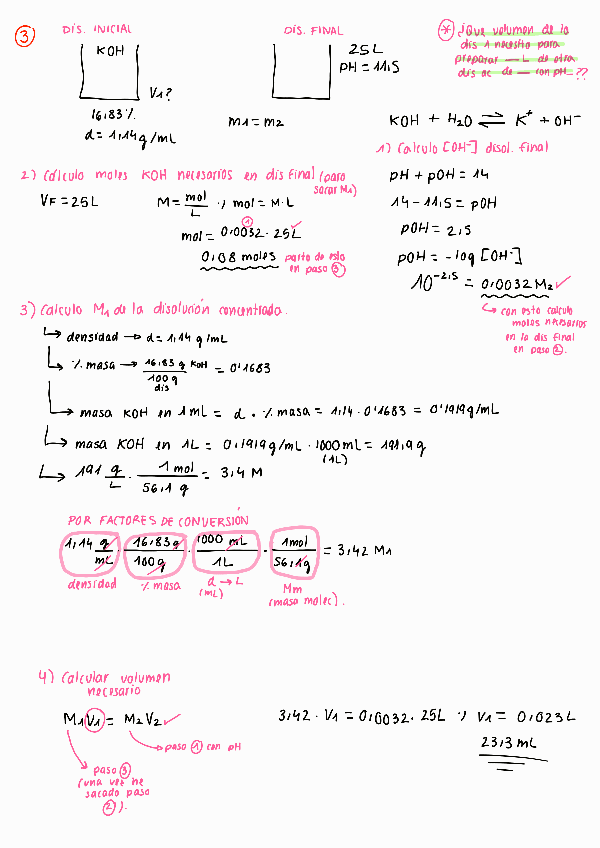 ③
DIS. INICIAL
KOH
V1?
16,83%
d = 1,14 g/mL
DIS. FINAL
25L
pH = 11,5
M1 = M2
* ¿Que volumen de la
dis 1 necesito para
preparar — L de otra
dis ac de — con pH_??
KOH + H2O ⇌ K+ + OH-
1) Calculo [OH-] disol. final
pH + pOH = 14
14 - 11,5 = pOH
pOH = 2,5
pOH = -log [OH-]
10^-2,5 = 0,0032 M2 ✓
↳ con esto calculo
moles necesarios
en la dis final
en paso ②.
2) Calculo moles KOH necesarios en dis final (para
sacar M1)
VF = 25L
M = mol/L ; mol = M·L
①
mol = 0,0032 · 25L ✓
0,08 moles
parto de esto
en paso ③
3) Calculo M1 de la disolución concentrada.
↳ densidad → d = 1,14 g/mL
↳ % masa → 16,83 g KOH / 100 g dis = 0'1683
↳ masa KOH en 1 mL = d · % masa = 1,14 · 0'1683 = 0'1919 g/mL
↳ masa KOH en 1L = 0,1919 g/mL · 1000 mL = 191,9 g
(1L)
↳ 191 g/L · 1 mol / 56,1 g = 3,4 M
POR FACTORES DE CONVERSIÓN
1,14 g/mL · 16,83 g/100 g · 1000 mL/1L · 1mol/56,1g = 3,42 M1
densidad
% masa
d → L
(mL)
Mm
(masa molec).
4) Calcular volumen
necesario
M1V1 = M2V2 ✓
→ paso ① con pH
paso ③
(una vez he
sacado paso
②).
3,42 · V1 = 0,0032 · 25L ; V1 = 0,023L
23,3 mL